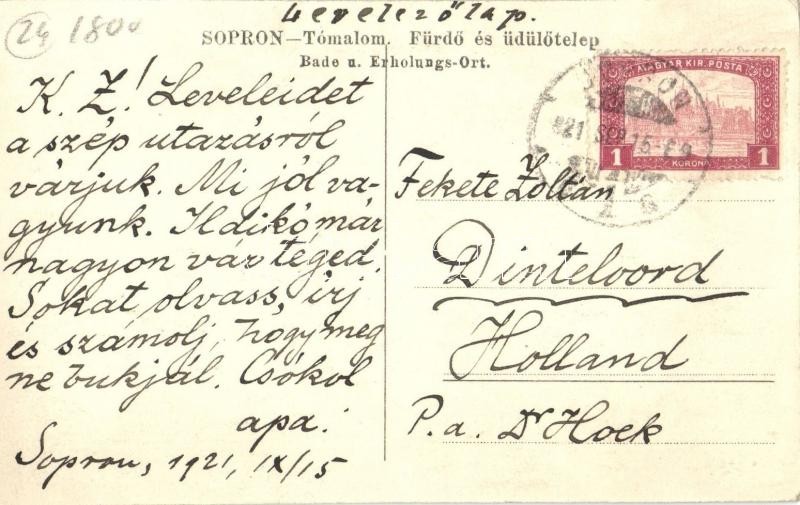 24 1800
Levelezőlap.
SOPRON—Tómalom. Fürdő és üdülőtelep
Bade u. Erholungs-Ort.
K. Z! Leveleidet
a szép utazásról
várjuk. Mi jól va-
gyunk. Ildikó már
nagyon vár téged.
Sokat olvass, írj
és számolj, hogy meg
ne bukjál. Csókol
apa.
Sopron, 1921, IX/15
MAGYAR KIR. POSTA
1 KORONA 1
921 SEP 15
Fekete Zoltán
Dinteloord
Holland
P. a. Dr Hoek